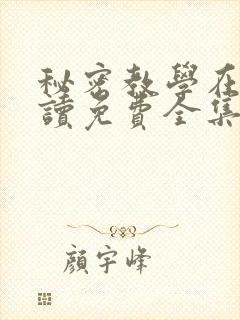 秘密教學在
讀免費全集
顏宇峰